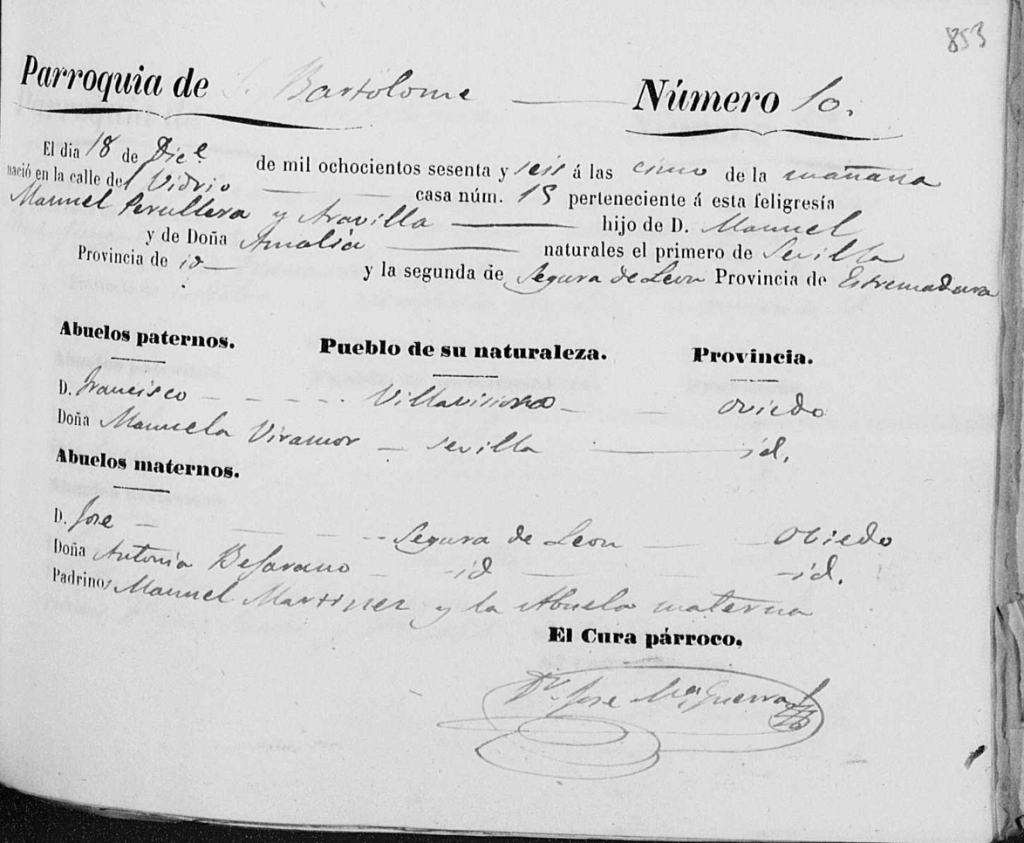 853
Parroquia de S. Bartolome Número 10.
El dia 18 de Dice de mil ochocientos sesenta y seis á las cinco de la mañana
nació en la calle del Vidrio casa núm. 15 perteneciente á esta feligresía
Manuel Perullera y Aravilla hijo de D. Manuel
y de Doña Amalia naturales el primero de Sevilla
Provincia de id y la segunda de Segura de Leon Provincia de Estremadura
Abuelos paternos. Pueblo de su naturaleza. Provincia.
D. Francisco Villaviciosa Oviedo
Doña Manuela Viramor Sevilla id.
Abuelos maternos.
D. Jose Segura de Leon Obiedo
Doña Antonia Besarano id id.
Padrinos Manuel Martinez y la Abuela materna
El Cura párroco,
Dr. Jose Ma Guerra